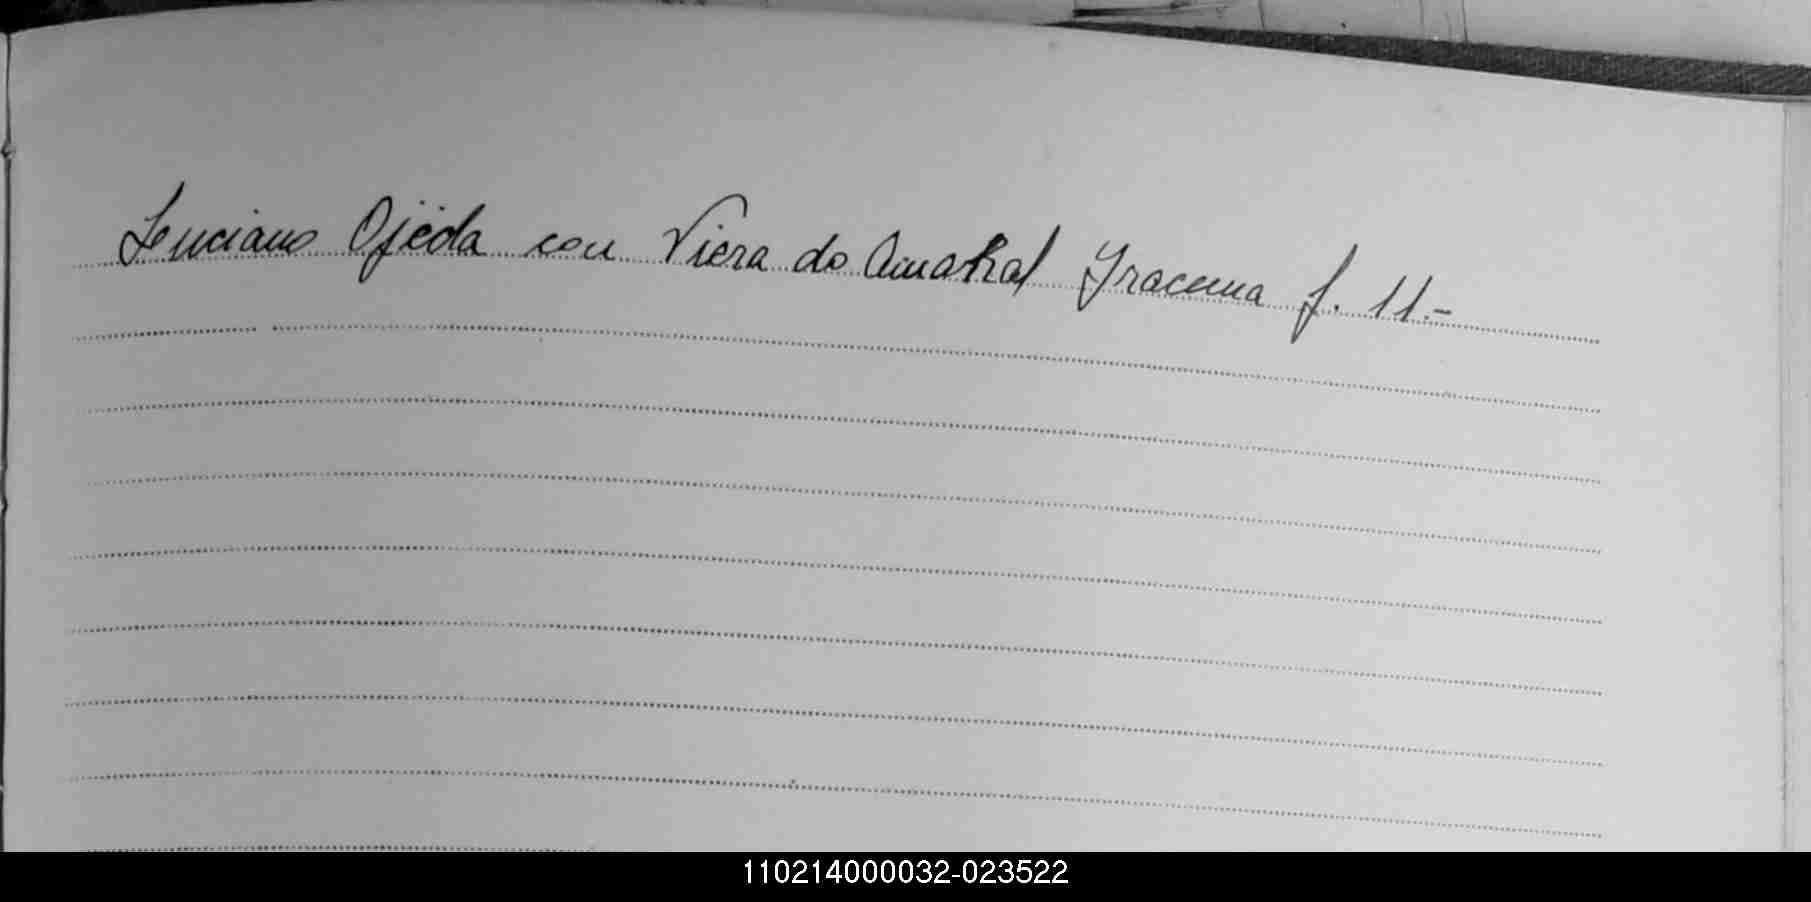 Luciano Ojeda con Viera do Amaral Iracema f. 11.-
110214000032-023522